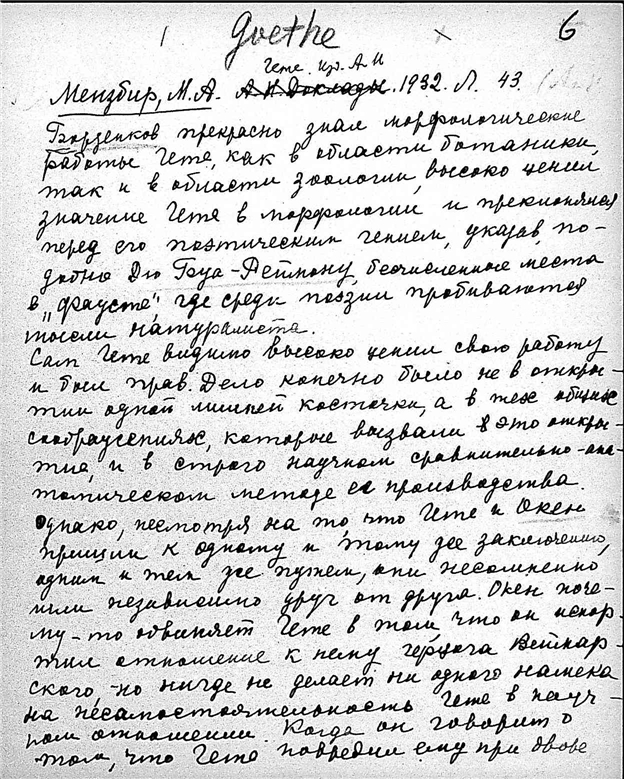 Goethe 6
Гете. Изд. АН
Мензбир, М.А. А.Н. Доклады. 1932. Л. 43.
Борзенков прекрасно знал морфологические
работы Гете, как в области ботаники,
так и в области зоологии, высоко ценил
значение Гете в морфологии и преклонялся
перед его поэтическим гением, указав, по-
добно Дю Буа-Реймону, бесчисленные места
в „Фаусте", где среди поэзии пробиваются
мысли натуралиста.
Сам Гете видимо высоко ценил свою работу
и был прав. Дело конечно было не в откры-
тии одной лишней косточки, а в тех общих
соображениях, которые вызвали это откры-
тие, и в строго научном сравнительно-ана-
томическом методе ее производства.
Однако, несмотря на то, что Гете и Окен
пришли к одному и тому же заключению,
одним и тем же путем, они несомненно
шли независимо друг от друга. Окен поче-
му-то обвиняет Гете в том что он испор-
тил отношение к нему герцога Веймар-
ского, но нигде не делает ни одного намека
на несамостоятельность Гете в науч-
ном отношении. Когда он говорит о
том, что Гете повредил ему при дворе